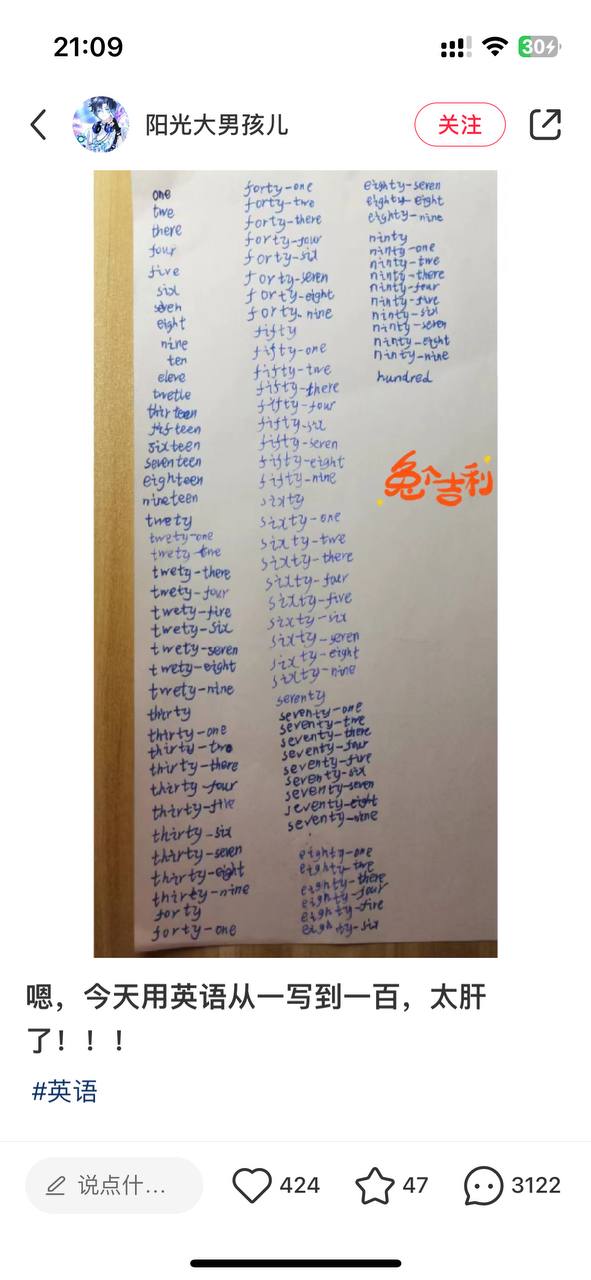 21:09
30
阳光大男孩儿
关注
one
twe
there
four
five
six
seven
eight
nine
ten
eleve
twetle
thirteen
fifteen
sixteen
seventeen
eighteen
nineteen
twety
twety-one
twety-twe
twety-there
twety-four
twety-five
twety-six
twety-seven
twety-eight
twety-nine
thirty
thirty-one
thirty-two
thirty-there
thirty-four
thirty-five
thirty-six
thirty-seven
thirty-eight
thirty-nine
forty
forty-one
forty-one
forty-twe
forty-there
forty-four
forty-six
forty-seven
forty-eight
forty-nine
fifty
fifty-one
fifty-twe
fifty-there
fifty-four
fifty-six
fifty-seven
fifty-eight
fifty-nine
sixty
sixty-one
sixty-twe
sixty-there
sixty-four
sixty-five
sixty-six
sixty-seven
sixty-eight
sixty-nine
seventy
seventy-one
seventy-twe
seventy-there
seventy-four
seventy-five
seventy-six
seventy-seven
seventy-eight
seventy-nine
eighty-one
eighty-twe
eighty-there
eighty-four
eighty-five
eighty-six
eighty-seven
eighty-eight
eighty-nine
ninty
ninty-one
ninty-twe
ninty-there
ninty-four
ninty-five
ninty-six
ninty-seven
ninty-eight
ninty-nine
hundred
兔个吉利
嗯，今天用英语从一写到一百，太肝
了！！！
#英语
说点什...
424
47
3122